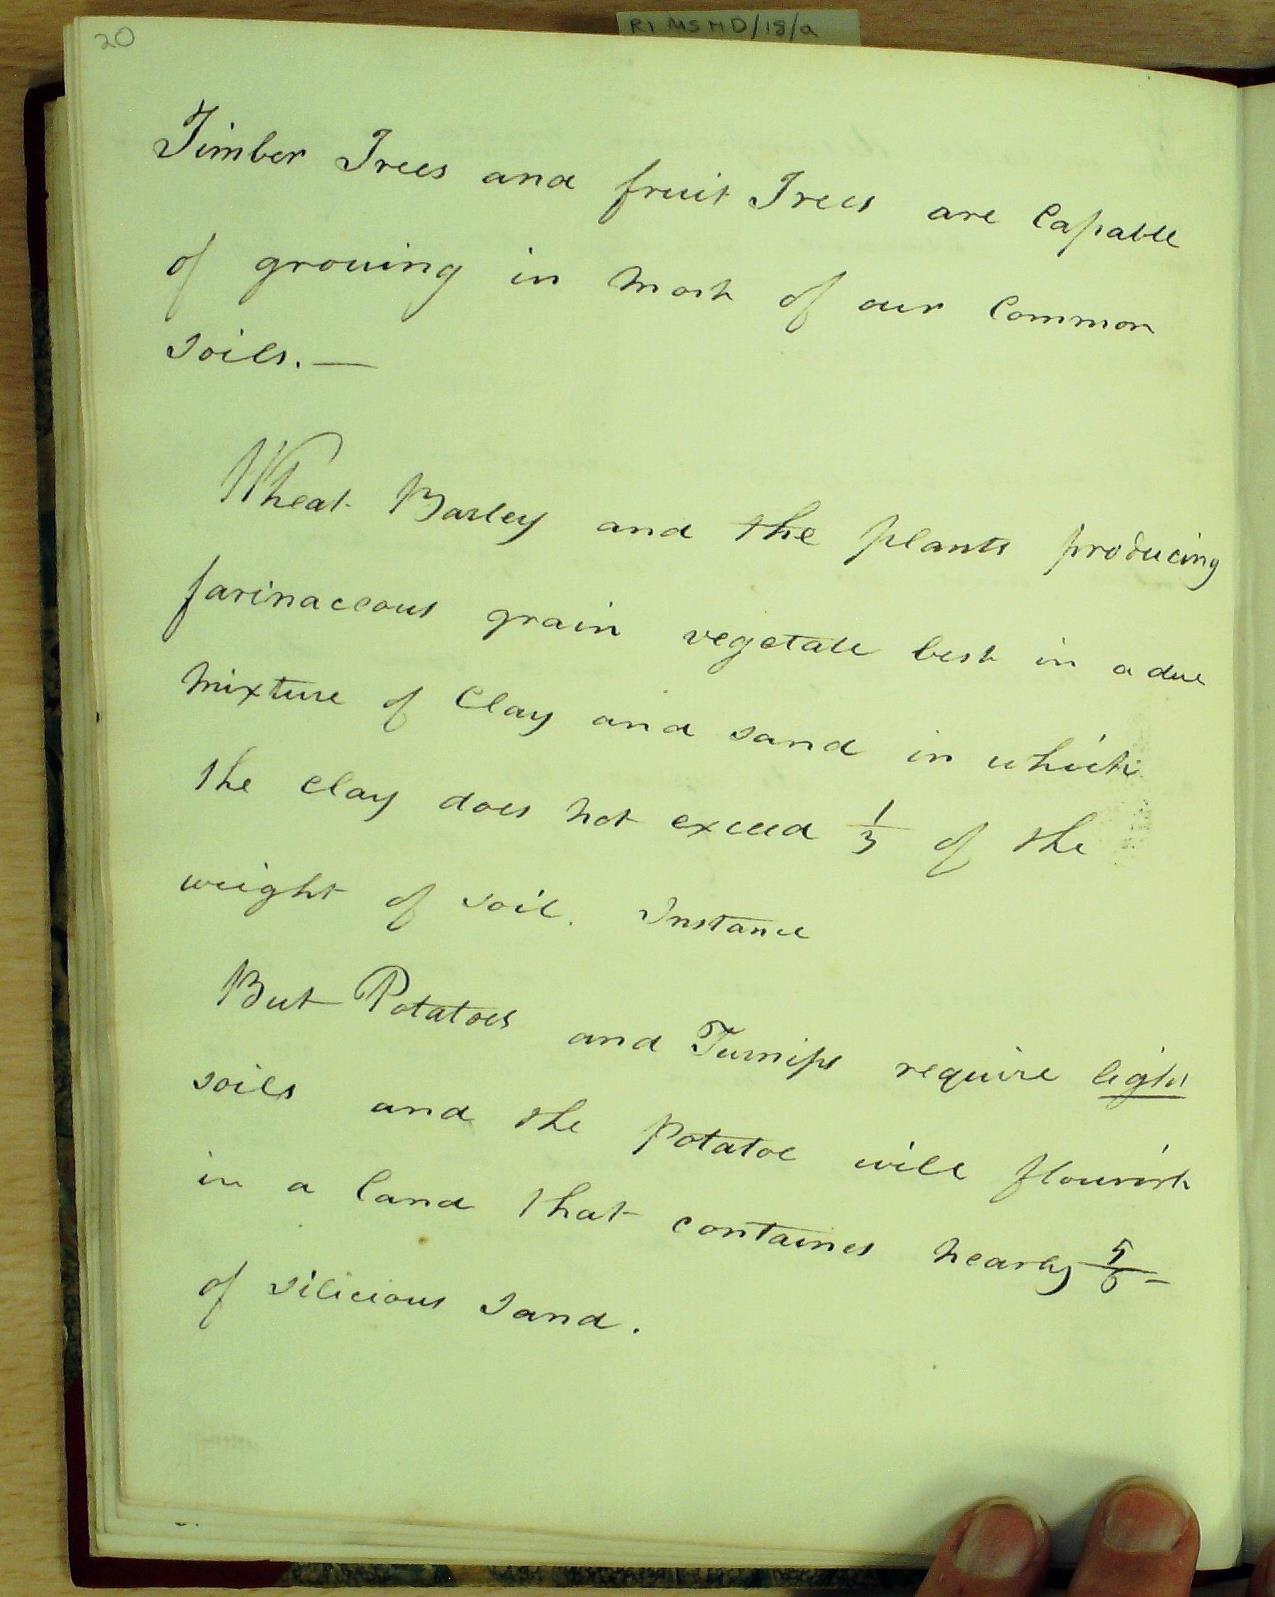 RI MS HD/18/a
20
Timber Trees and fruit Trees are Capable
of growing in most of our Common
soils.—
Wheat Barley and the plants producing
farinaceous grain vegetate best in a due
mixture of Clay and sand in which
the clay does not exceed 1/3 of the
weight of soil. Instance
But Potatoes and Turnips require light
soils and the potatoe will flourish
in a land that containes nearly 5/6
of silicious sand.